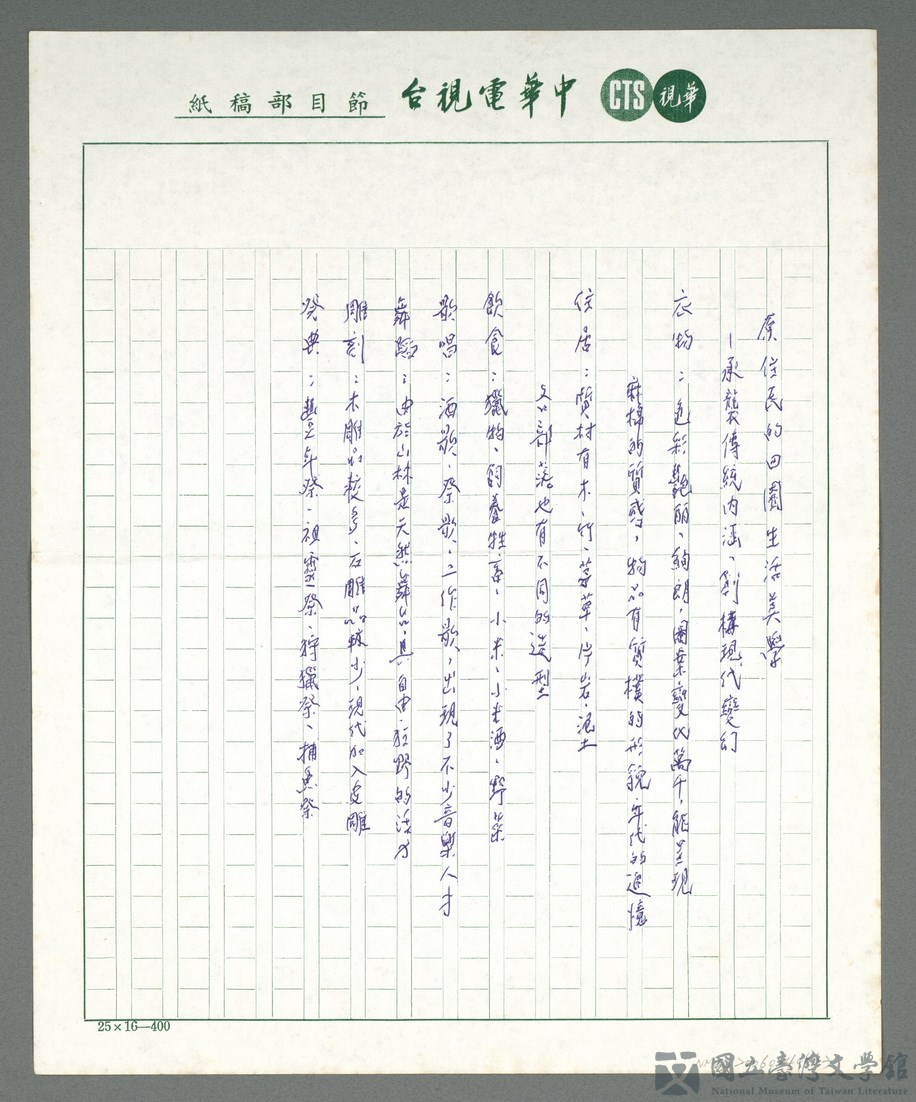 中華電視台節目部稿紙
CTS 華視
原住民的田園生活美學
—承襲傳統內涵、創構現代變幻
衣物：色彩艷丽、絢朗，圖案變化萬千，能呈現
麻棉的質感，物品有質樸的形貌、年代的追憶
住居：質材有木、竹、茅草、片岩、泥土
各部落也有不同的造型
飲食：獵物、飼養牲畜、小米、小米酒、野菜
歌唱：酒歌、祭歌、工作歌，出現了不少音樂人才
舞蹈：由於山林是天然舞台，具自由、狂野的活力
雕刻：木雕品較多、石雕品較少，現代加入皮雕
祭典：豐年祭、祖靈祭、狩獵祭、捕魚祭
25×16—400
國立臺灣文學館
National Museum of Taiwan Literature